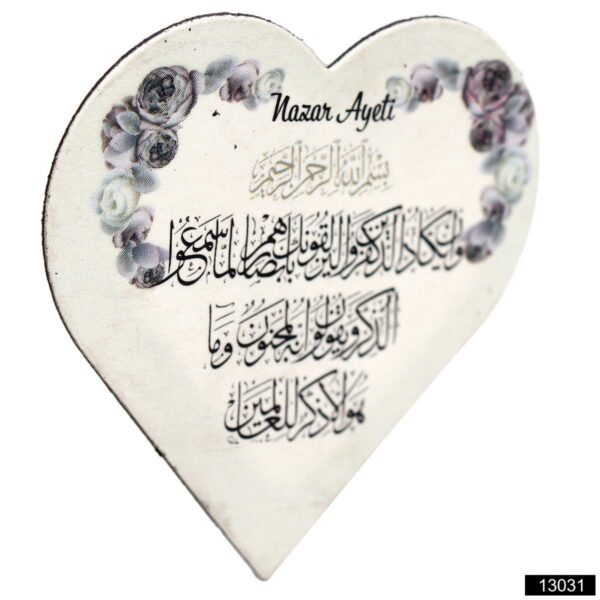 Nazar Ayeti
بسم الله الرحمن الرحيم
وان يكاد الذين كفروا ليزلقونك بابصارهم لما سمعوا
الذكر ويقولون انه لمجنون وما
هو الا ذكر للعالمين
13031